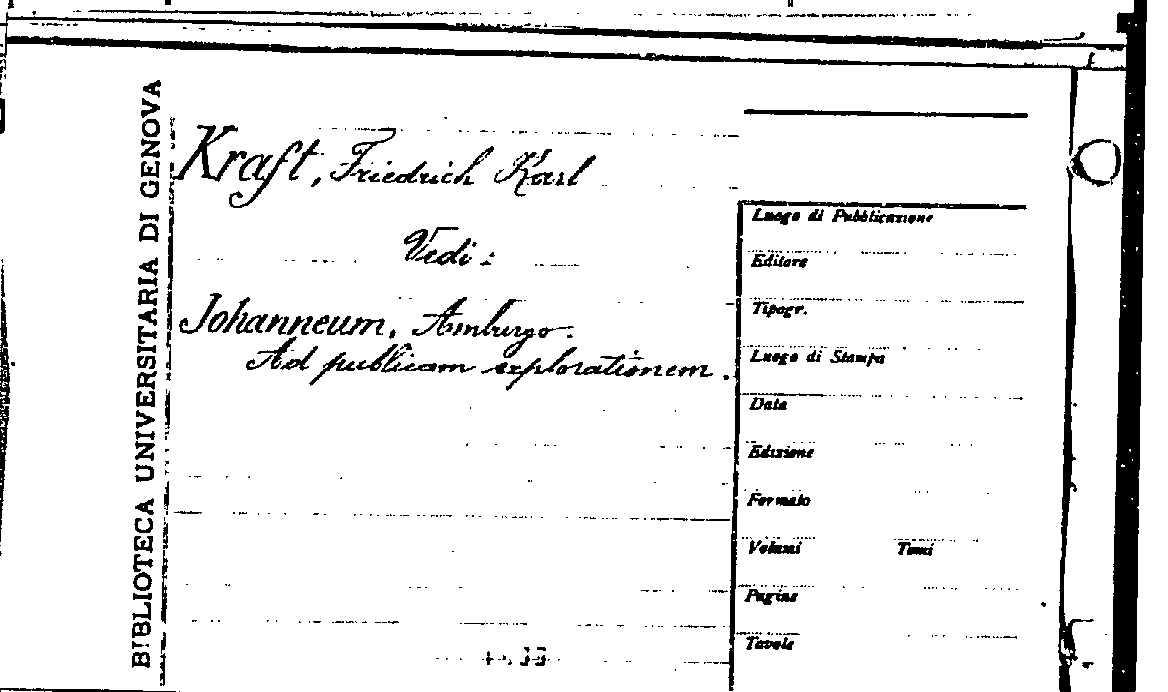 BIBLIOTECA UNIVERSITARIA DI GENOVA
Kraft, Friedrich Karl
Vedi:
Johanneum, Amburgo.
Ad publicam explorationem.
Luogo di Pubblicazione
Editore
Tipogr.
Luogo di Stampa
Data
Edizione
Formato
Volumi Tomi
Pagine
Tavole